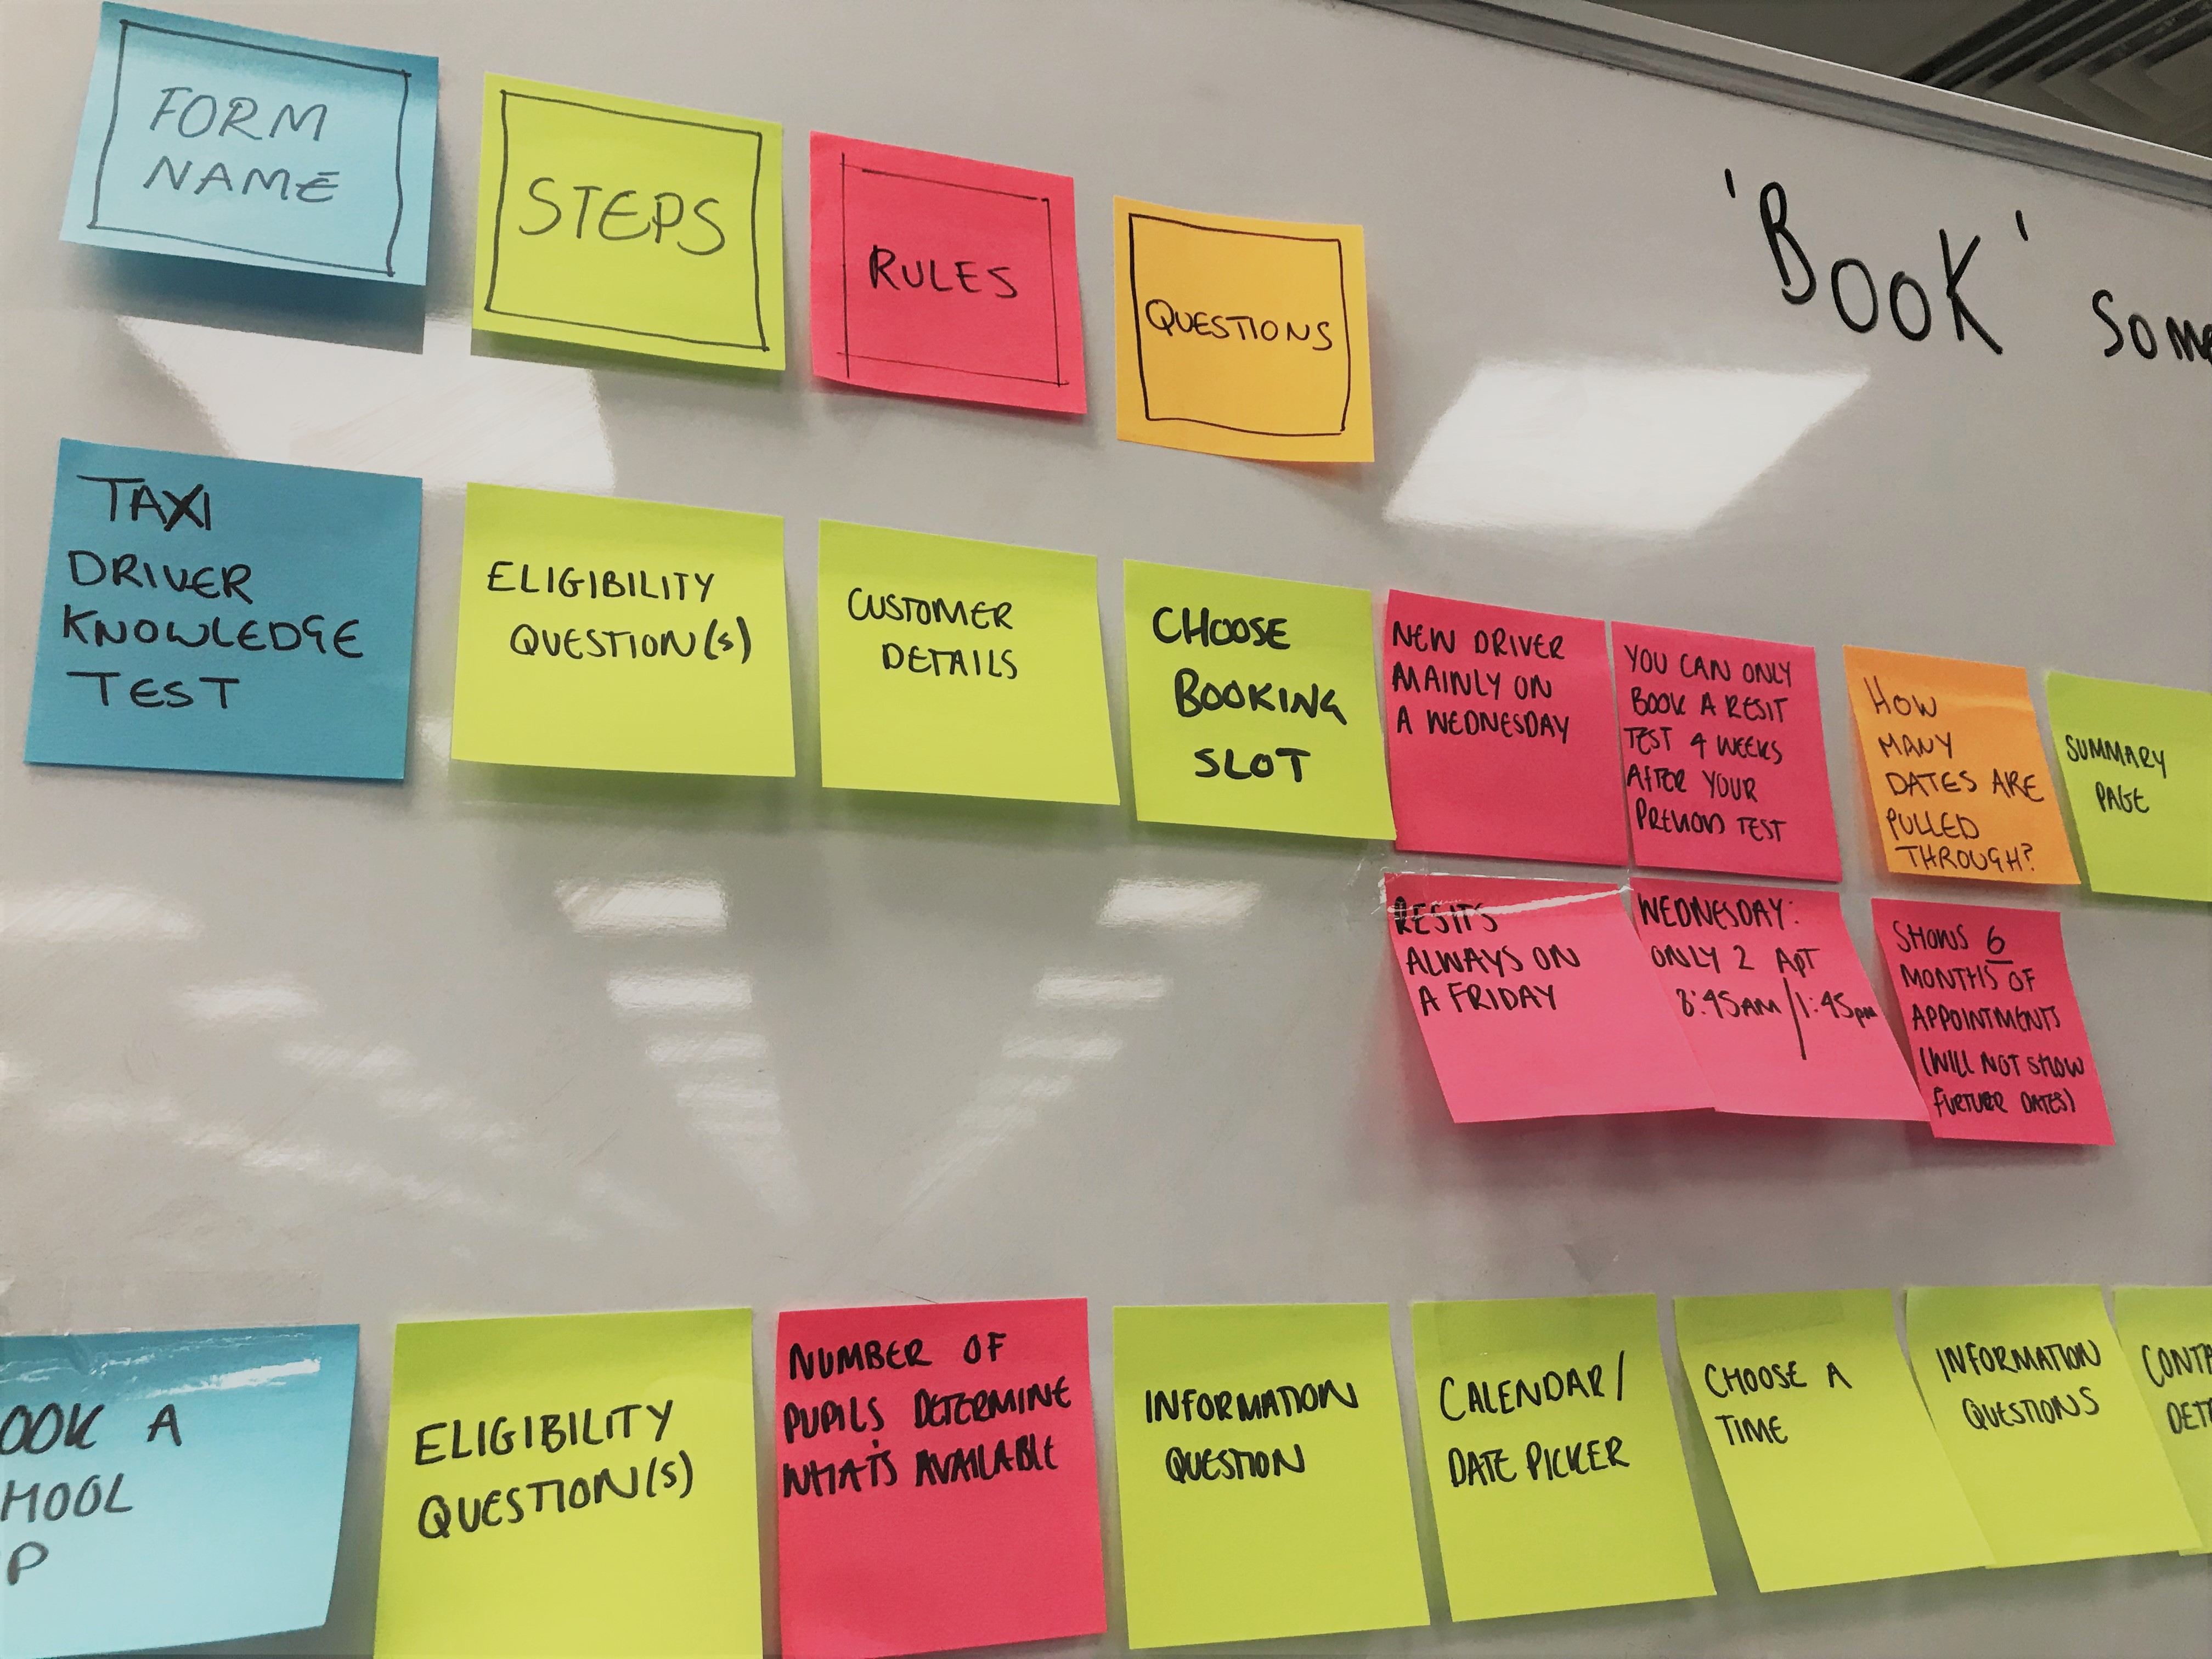 FORM
NAME
STEPS
RULES
QUESTIONS
'BOOK'
TAXI
DRIVER
KNOWLEDGE
TEST
ELIGIBILITY
QUESTION(S)
CUSTOMER
DETAILS
CHOOSE
BOOKING
SLOT
NEW DRIVER
MAINLY ON
A WEDNESDAY
YOU CAN ONLY
BOOK A RESIT
TEST 4 WEEKS
AFTER YOUR
PREVIOUS TEST
HOW
MANY
DATES ARE
PULLED
THROUGH?
SUMMARY
PAGE
RESITS
ALWAYS ON
A FRIDAY
WEDNESDAY:
ONLY 2 APT
8:45AM/1:45pm
SHOWS 6
MONTHS OF
APPOINTMENTS
(WILL NOT SHOW
FURTHER DATES)
OOK A
HOOL
P
ELIGIBILITY
QUESTION(S)
NUMBER OF
PUPILS DETERMINE
WHAT'S AVAILABLE
INFORMATION
QUESTION
CALENDAR/
DATE PICKER
CHOOSE A
TIME
INFORMATION
QUESTIONS